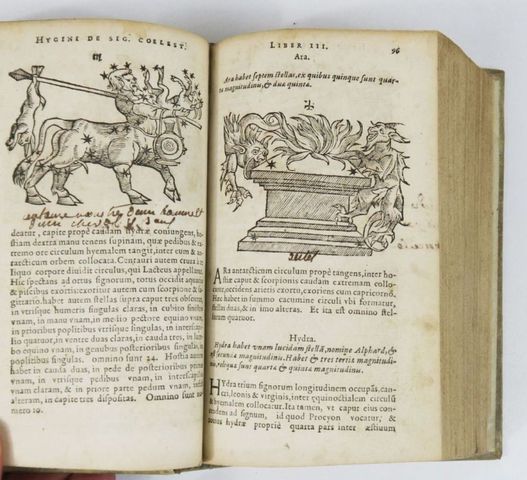 HYGINI DE SIG. COELEST.
deatur, capite propè caudam Hydræ coniungens, ho-
stiam dextra manu tenens supinam, quæ pedibus & ex-
tremo ore circulum hyemalem tangit, inter eum & cæ-
ticum orbem collocata. Centauri autem crura à re-
liquo corpore diuidit circulus, qui Lacteus appellatur.
Hic spectans ad ortus signorum, totus occidit aquario
& piscibus: exoritur autem cum scorpione & sa-
gittario. habet autem stellas supra caput tres obscuras,
in vtrisque humeris singulas claras, in cubito sinistro
vnam, in manu vnam, in medio pectore equino vnam,
in prioribus poplitibus vtrisque singulas, in interscapi-
lio quatuor, in ventre duas claras, in cauda tres, in lum-
bo equino vnam, in genubus posterioribus singulas, in
poplitibus singulas. omnino sunt 24. Hostia autem
habet in cauda duas, in pede de posterioribus primo
vnam, in vtrisque pedibus vnam, in interscapilio
vnam claram, & in priore parte pedum vnam, infra
alteram, in capite tres dispositas. Omnino sunt nu-
mero 10.
LIBER III. 96
Ara.
Ara habet septem stellas, ex quibus quinque sunt quar-
tæ magnitudinis, & duæ quintæ.
ARA antarcticum circulum propè tangens, inter ho-
stiæ caput & scorpionis caudam extremam collo-
cata, occidens arietis exortu, exoriens cum capricorno.
Hæc habet in summo cacumine circuli vbi formatur,
stellas duas, & in imo alteras. Et ita est omnino stel-
larum quatuor.
Hydra.
Hydra habet vnam lucidam stellā, nomine Alphard, &
est secundæ magnitudinis. Habet & tres tertiæ magnitudi-
nis, reliquæ sunt quartæ & quintæ magnitudinis.
HYdra trium signorum longitudinem occupās, can-
cri, leonis & virginis, inter æquinoctialem circulū
& hyemalem collocatur. Ita tamen, vt caput eius con-
tendens ad signum, id quod Procyon vocatur, &
totius hydræ propriè quarta pars inter æstiuum